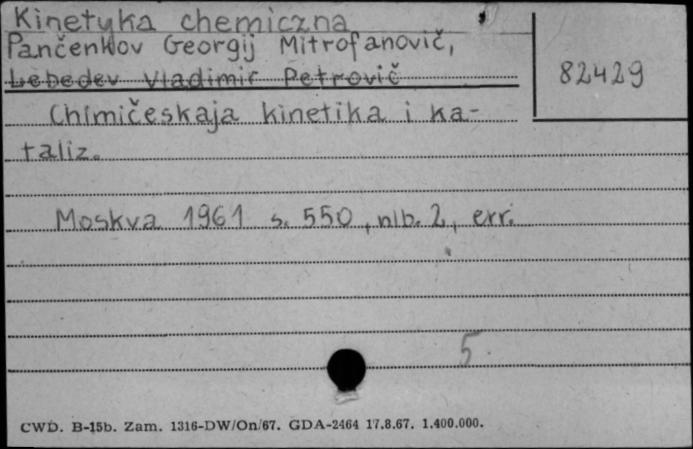 Kinetyka chemiczna
Pančenkov Georgij Mitrofanovič,
Lebedev Vladimir Petrovič
82429
Chimičeskaja kinetika i ka-
taliz.
Moskva 1961 s. 550, nlb. 2, err.
5.
CWD. B-15b. Zam. 1316-DW/On/67. GDA-2464 17.8.67. 1.400.000.